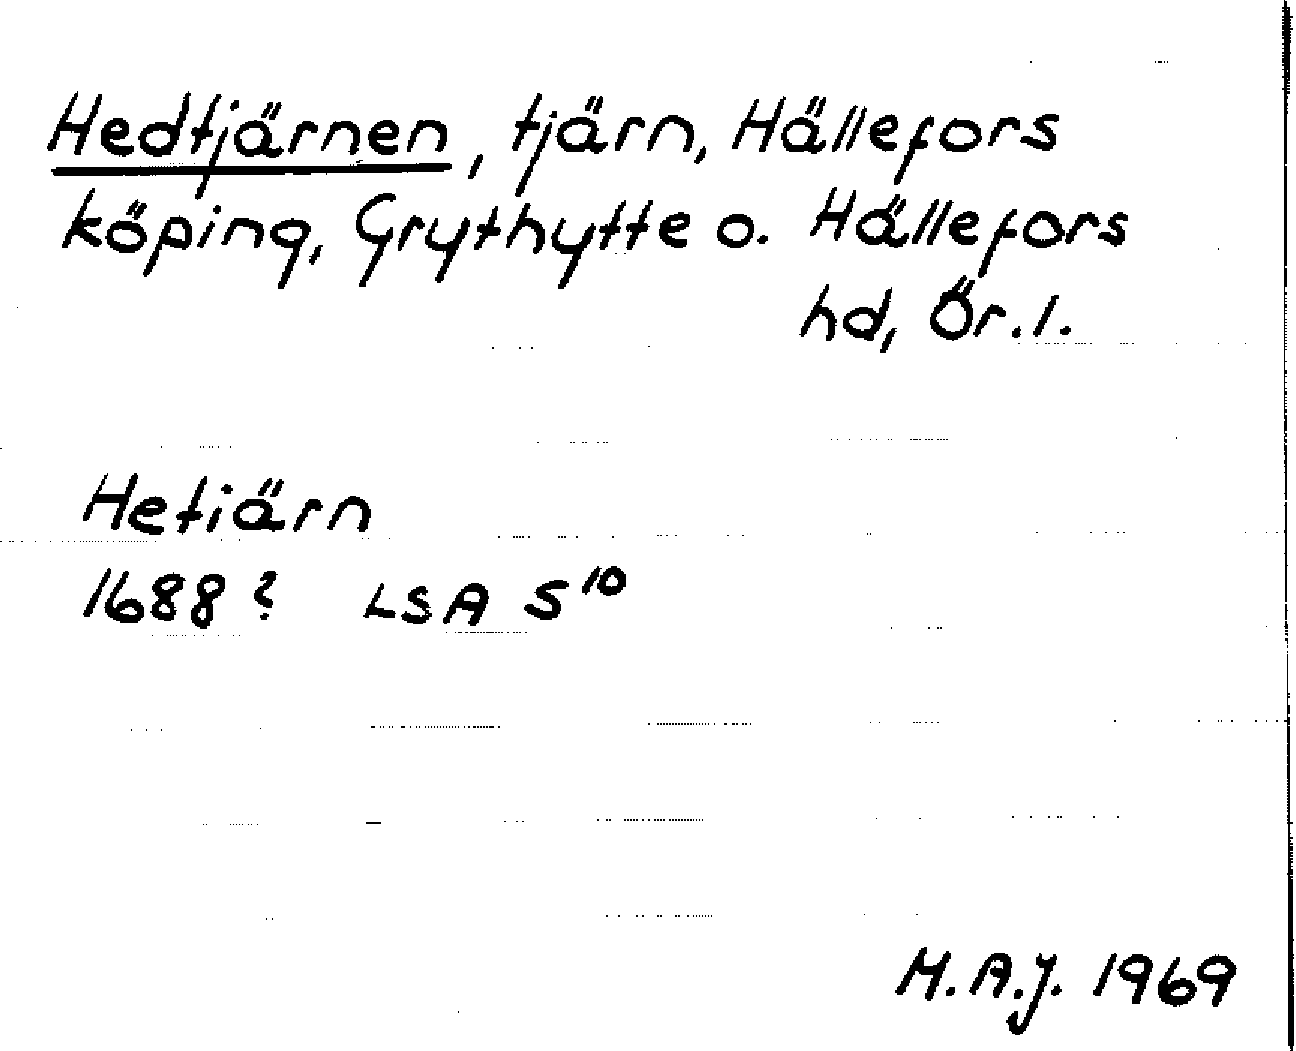 Hedtjärnen, tjärn, Hällefors
köping, Grythytte o. Hällefors
hd, Ör. l.
Hetiärn
1688? LSA S¹⁰
M.A.J. 1969